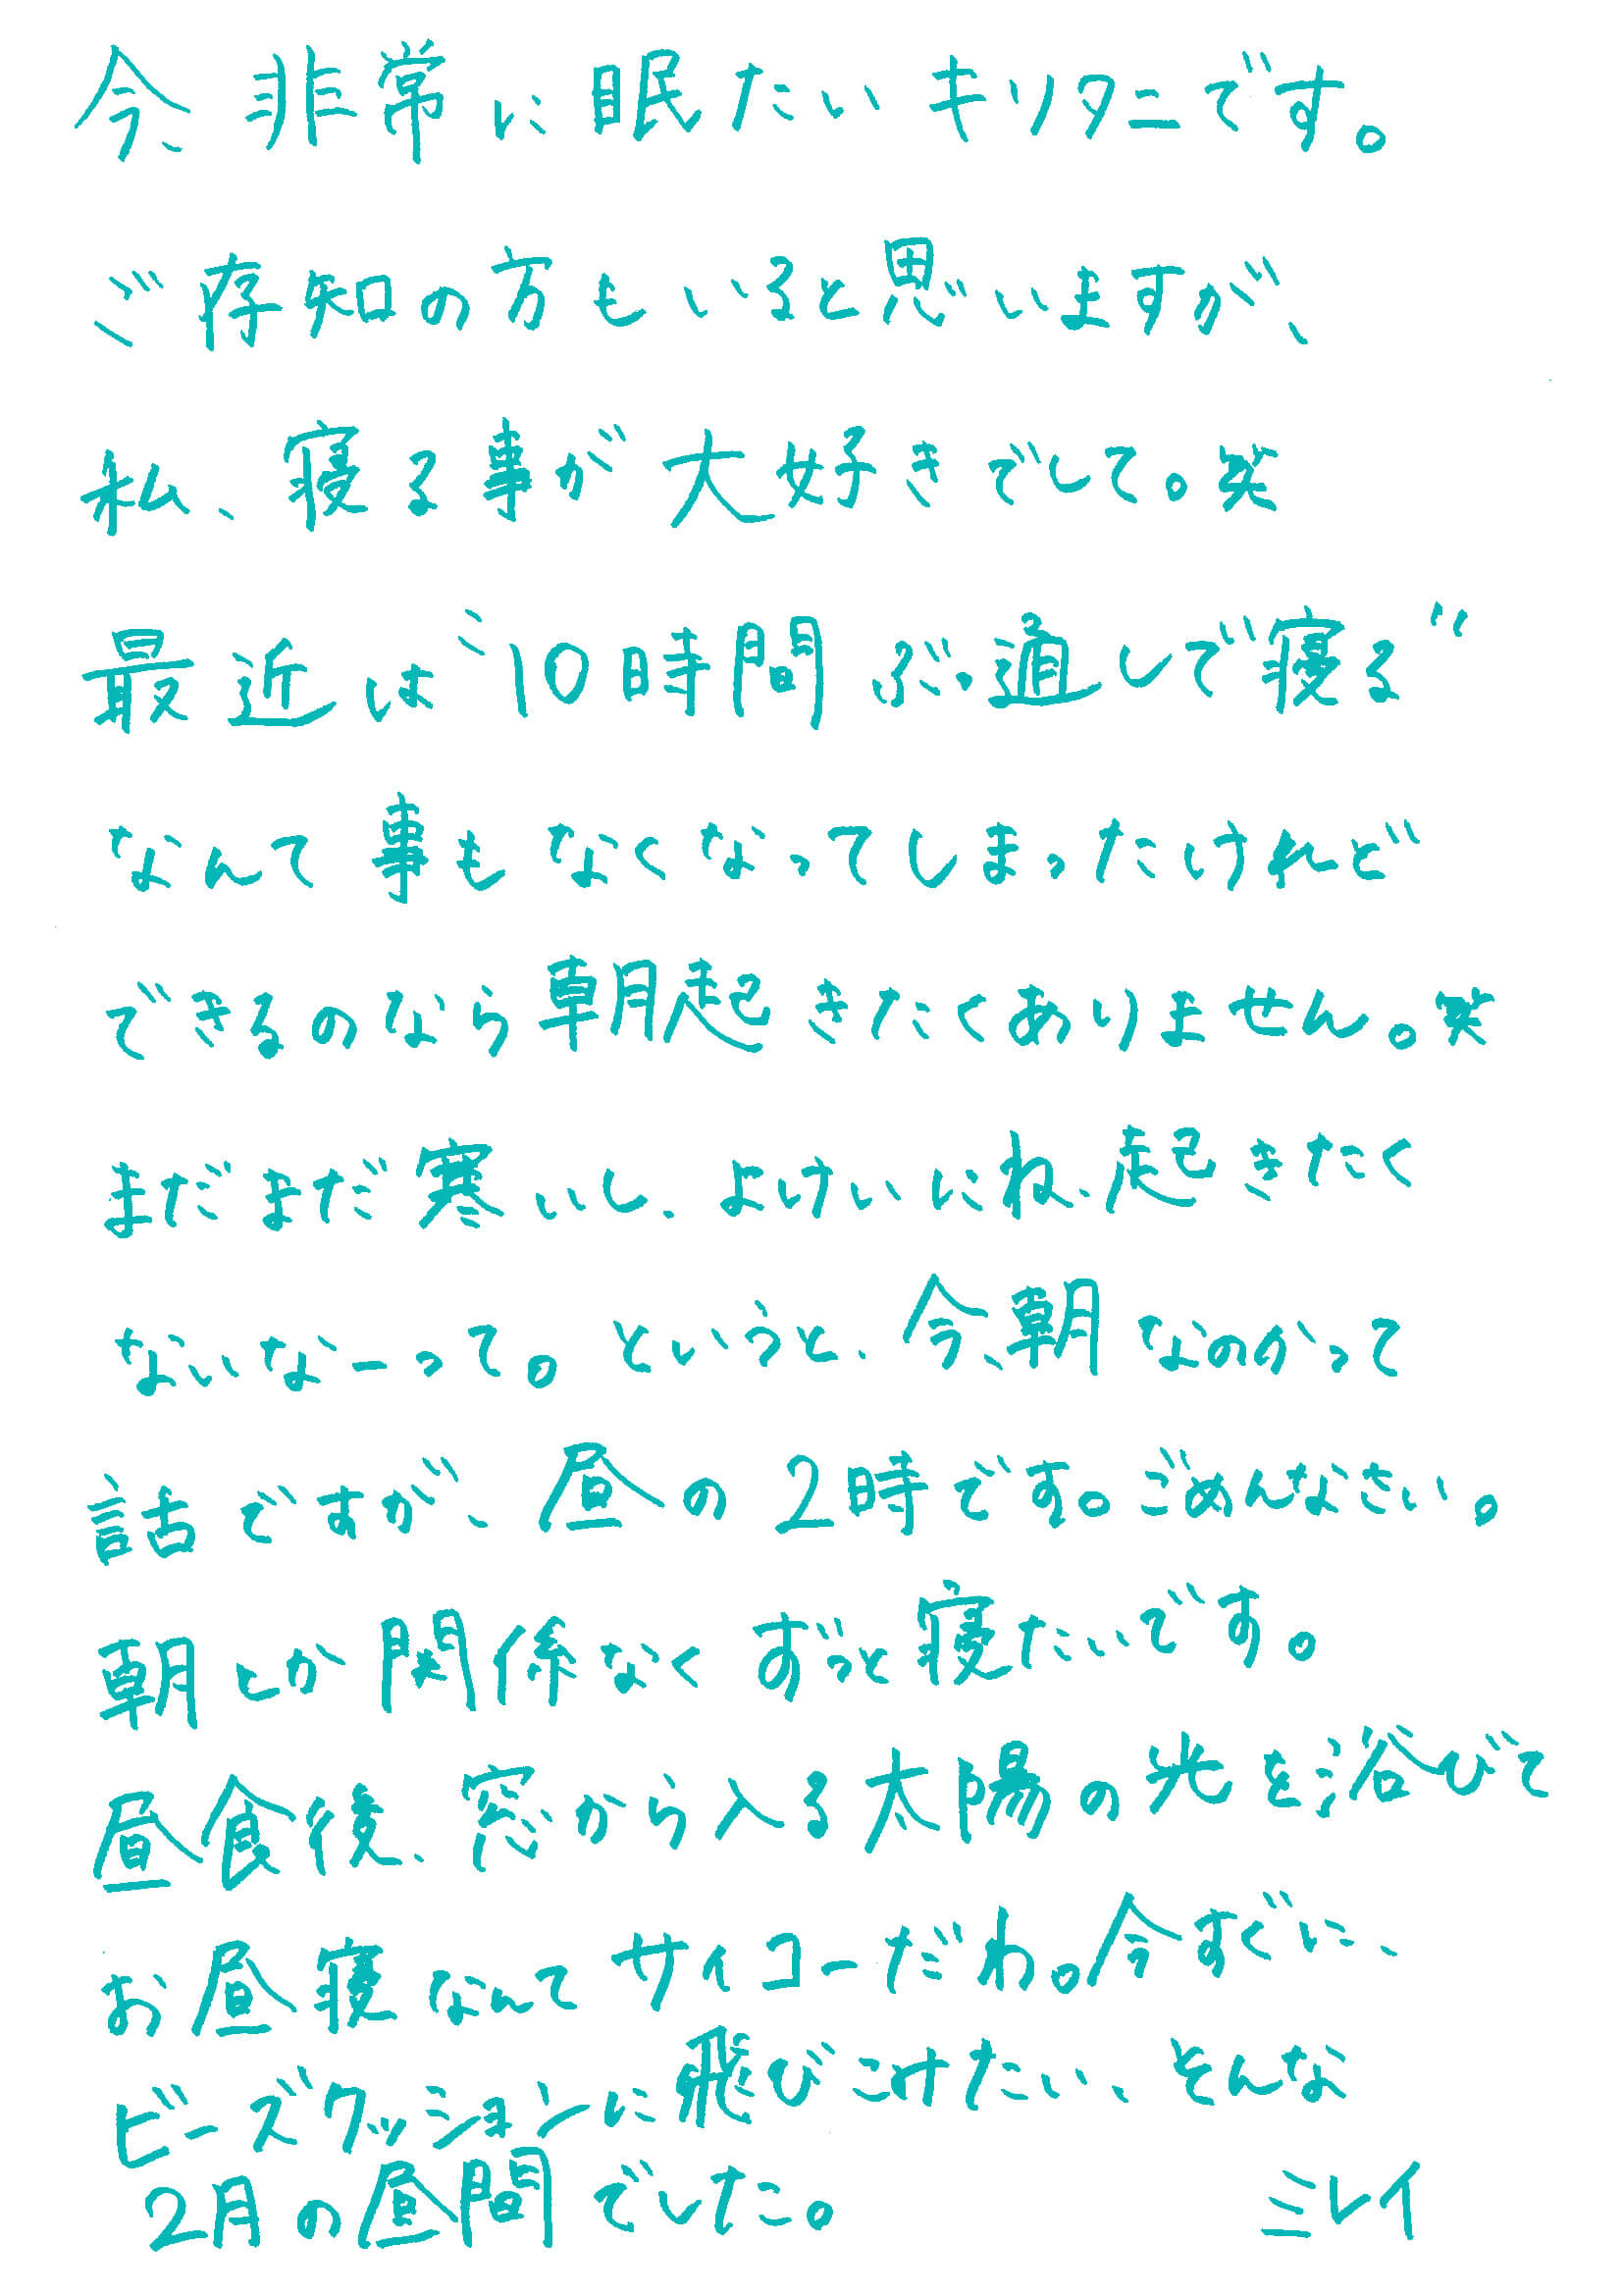 今、非常に眠たいキリタニです。
ご存知の方もいると思いますが、
私、寝る事が大好きでして。笑
最近は〝10時間ぶっ通しで寝る〟
なんて事もなくなってしまったけれど
できるのなら朝起きたくありません。笑
まだまだ寒いし、よけいにね、起きたく
ないなーって。というと、今、朝なのかって
話ですが、昼の2時です。ごめんなさい。
朝とか関係なくずっと寝たいです。
昼食後、窓から入る太陽の光を浴びて
お昼寝なんてサイコーだわ。今すぐに、
ビーズクッションに飛びこけたい、そんな
2月の昼間でした。 ミレイ